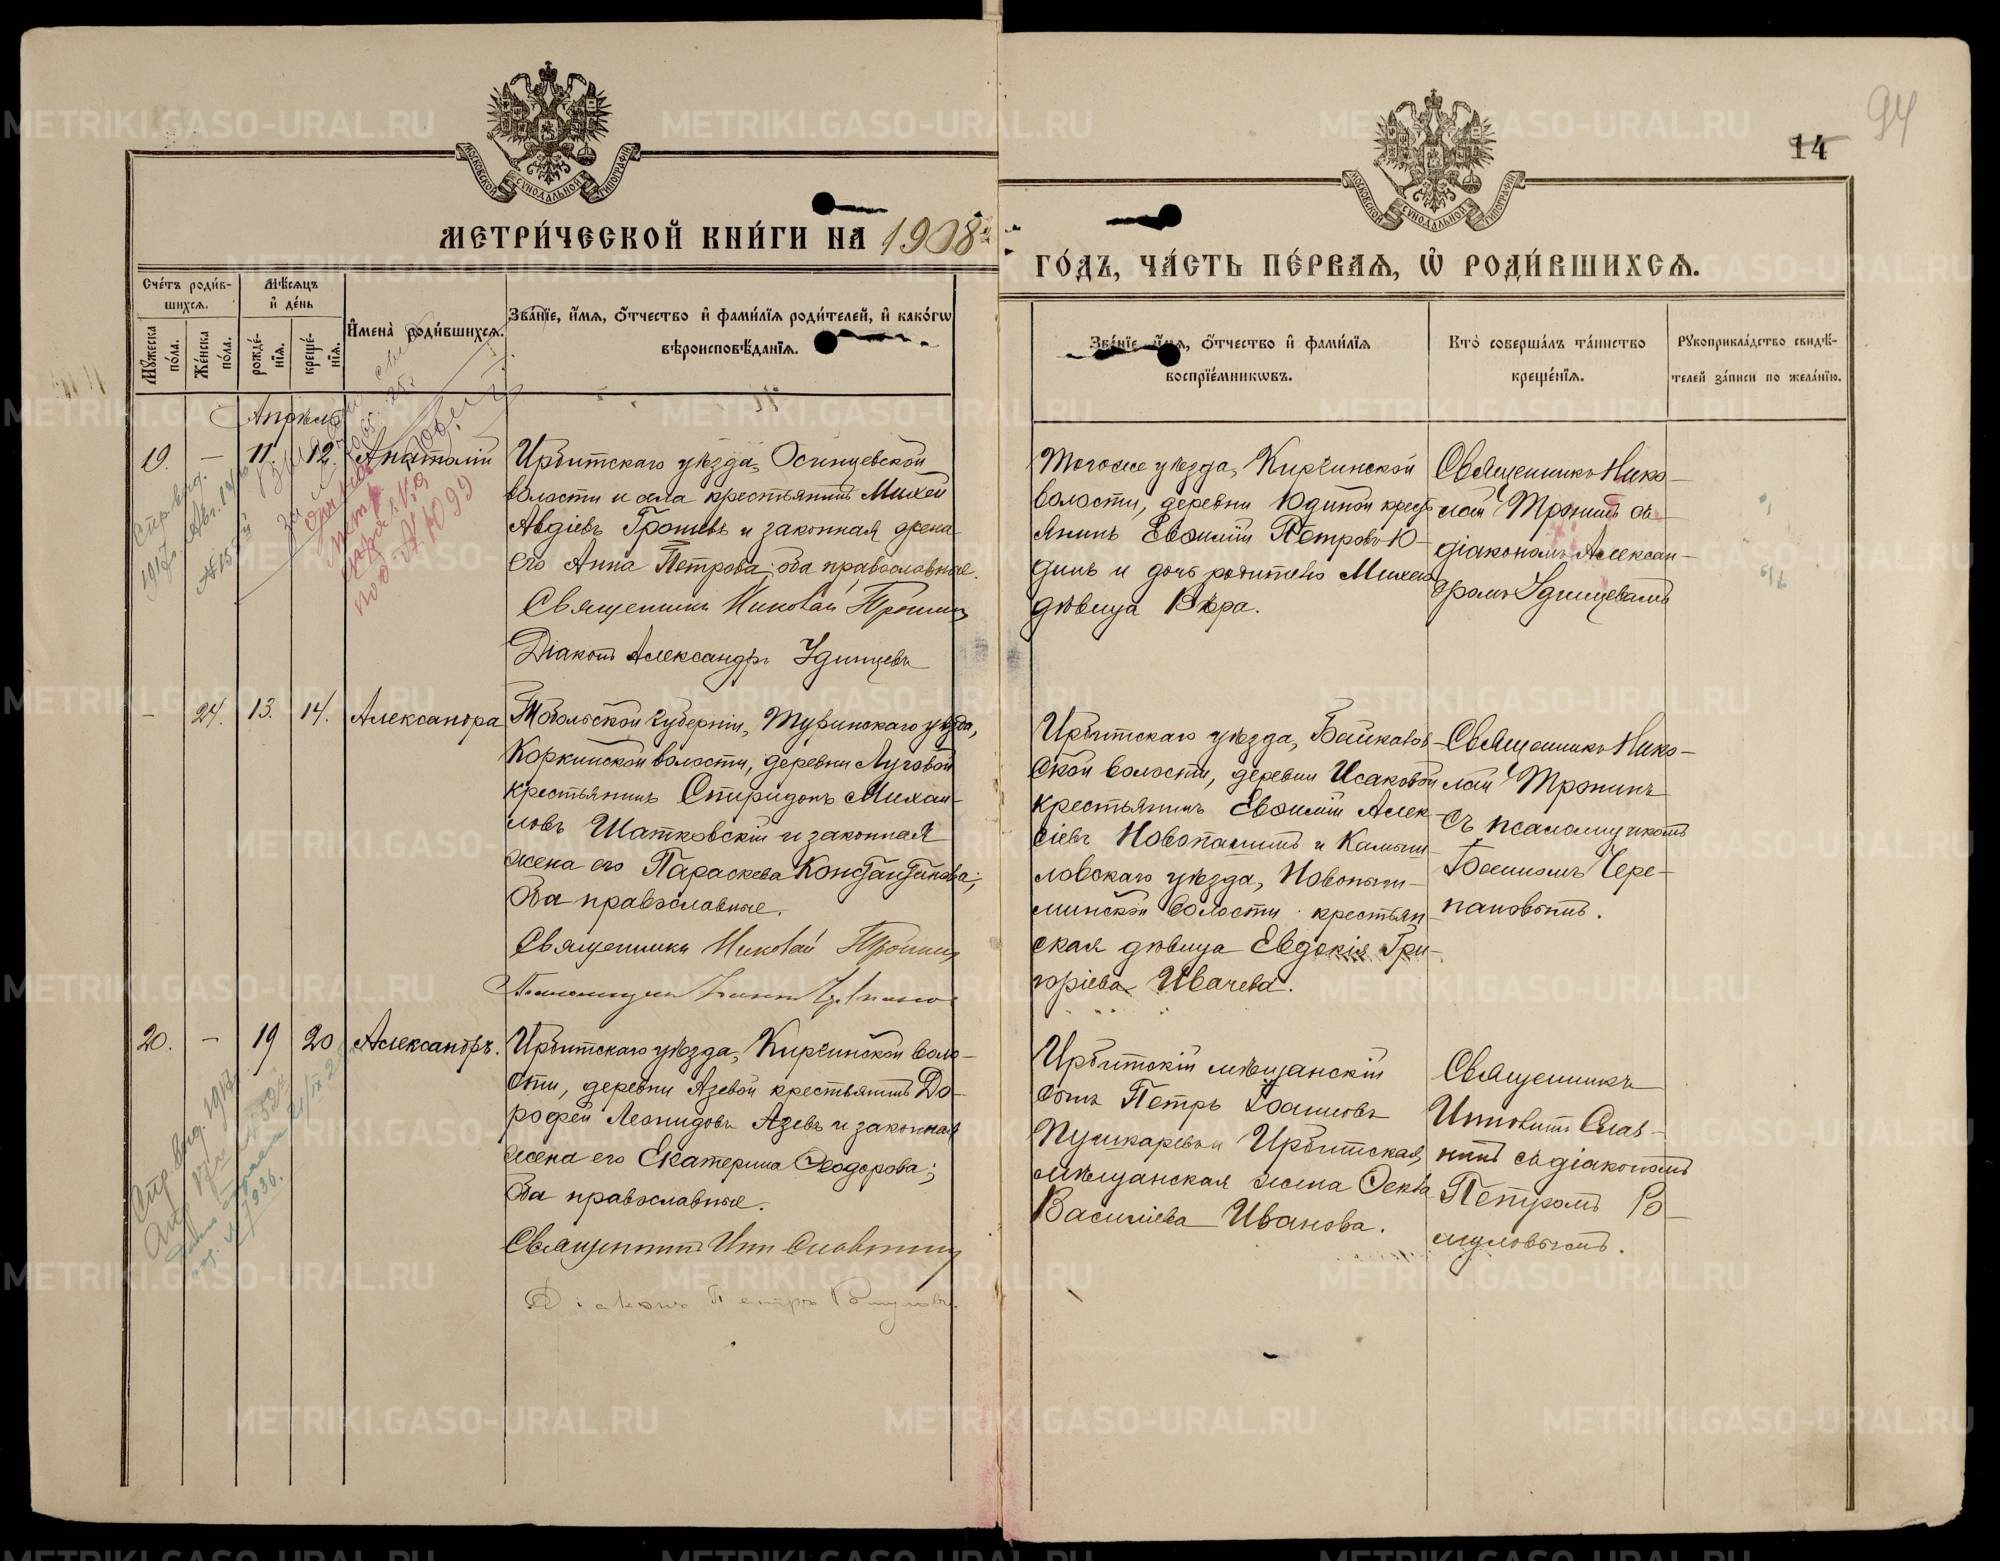 94
14
МОСКОВСКОЙ СѴНОДАЛЬНОЙ ТИПОГРАФІИ
МОСКОВСКОЙ СѴНОДАЛЬНОЙ ТИПОГРАФІИ
МЕТРИ́ЧЕСКОЙ КНИ́ГИ НА 1908
ГО́ДЪ, ЧА́СТЬ ПЕ́РВАЯ, Ѡ РОДИ́ВШИХСЯ.
Сче́тъ роди́в-
шихся.
Му́жеска по́ла.
Же́нска по́ла.
Мѣ́сяцъ
и де́нь
рожде́-
нїя.
креще́-
нїя.
Имена̀ роди́вшихся.
Зва́нїе, и́мя, о́тчество и фами́лїя роди́телей, и како́гѡ
вѣроисповѣ́данїя.
Зва́нїе, и́мя, о́тчество и фами́лїя
воспрїе́мникѡвъ.
Кто̀ соверша́лъ та́инство
креще́нїя.
Рукоприкла́дство свидѣ́-
телей за́писи по жела́нїю.
Апрѣль
19.
—
11.
12.
Анатолій
Ирбитскаго уѣзда, Осинцевской
волости и села крестьянинъ Михей
Авдіевъ Грошевъ и законная жена
его Анна Петрова; оба православные.
Священникъ Николай Тронинъ
Діаконъ Александръ Удинцевъ
Тогоже уѣзда, Киргинской
волости, деревни Юдиной крестъ
янинъ Евѳимій Петровъ Ю-
динъ и дочь родителя Михея
дѣвица Вѣра.
Священникъ Нико-
лай Тронинъ съ
діакономъ Алексан-
дромъ Удинцевымъ
—
24.
13.
14.
Александра
Тобольской губерніи, Туринскаго уѣзда,
Коркинской волости, деревни Луговой
крестьянинъ Спиридонъ Михаи-
ловъ Шатковскій и законная
жена его Параскева Константинова;
оба православные.
Священникъ Николай Тронинъ
Ирбитскаго уѣзда, Байкалов-
ской волости, деревни Исаковой
крестьянинъ Евѳимій Алек-
сіевъ Новопашинъ и Камыш-
ловскаго уѣзда, Новопыш-
минской волости крестьян-
ская дѣвица Евдокія Гри-
горіева Ивачева.
Священникъ Нико-
лай Тронинъ
съ псаломщикомъ
Іоанномъ Чере-
пановымъ.
20.
—
19
20
Александръ.
Ирбитскаго уѣзда, Киргинской воло-
сти, деревни Азевой крестьянинъ До-
рофей Леонидовъ Азевъ и законная
жена его Екатерина Ѳеодорова;
оба православные.
Діаконъ Петръ Ромуловъ.
Ирбитскій мѣщанскій
сынъ Петръ Іоанновъ
Пушкаревъ и Ирбитская
мѣщанская жена Ѳекла
Василіева Иванова.
Священникъ
Ипполитъ Слав-
нинъ съ діакономъ
Петромъ Ро-
муловымъ.